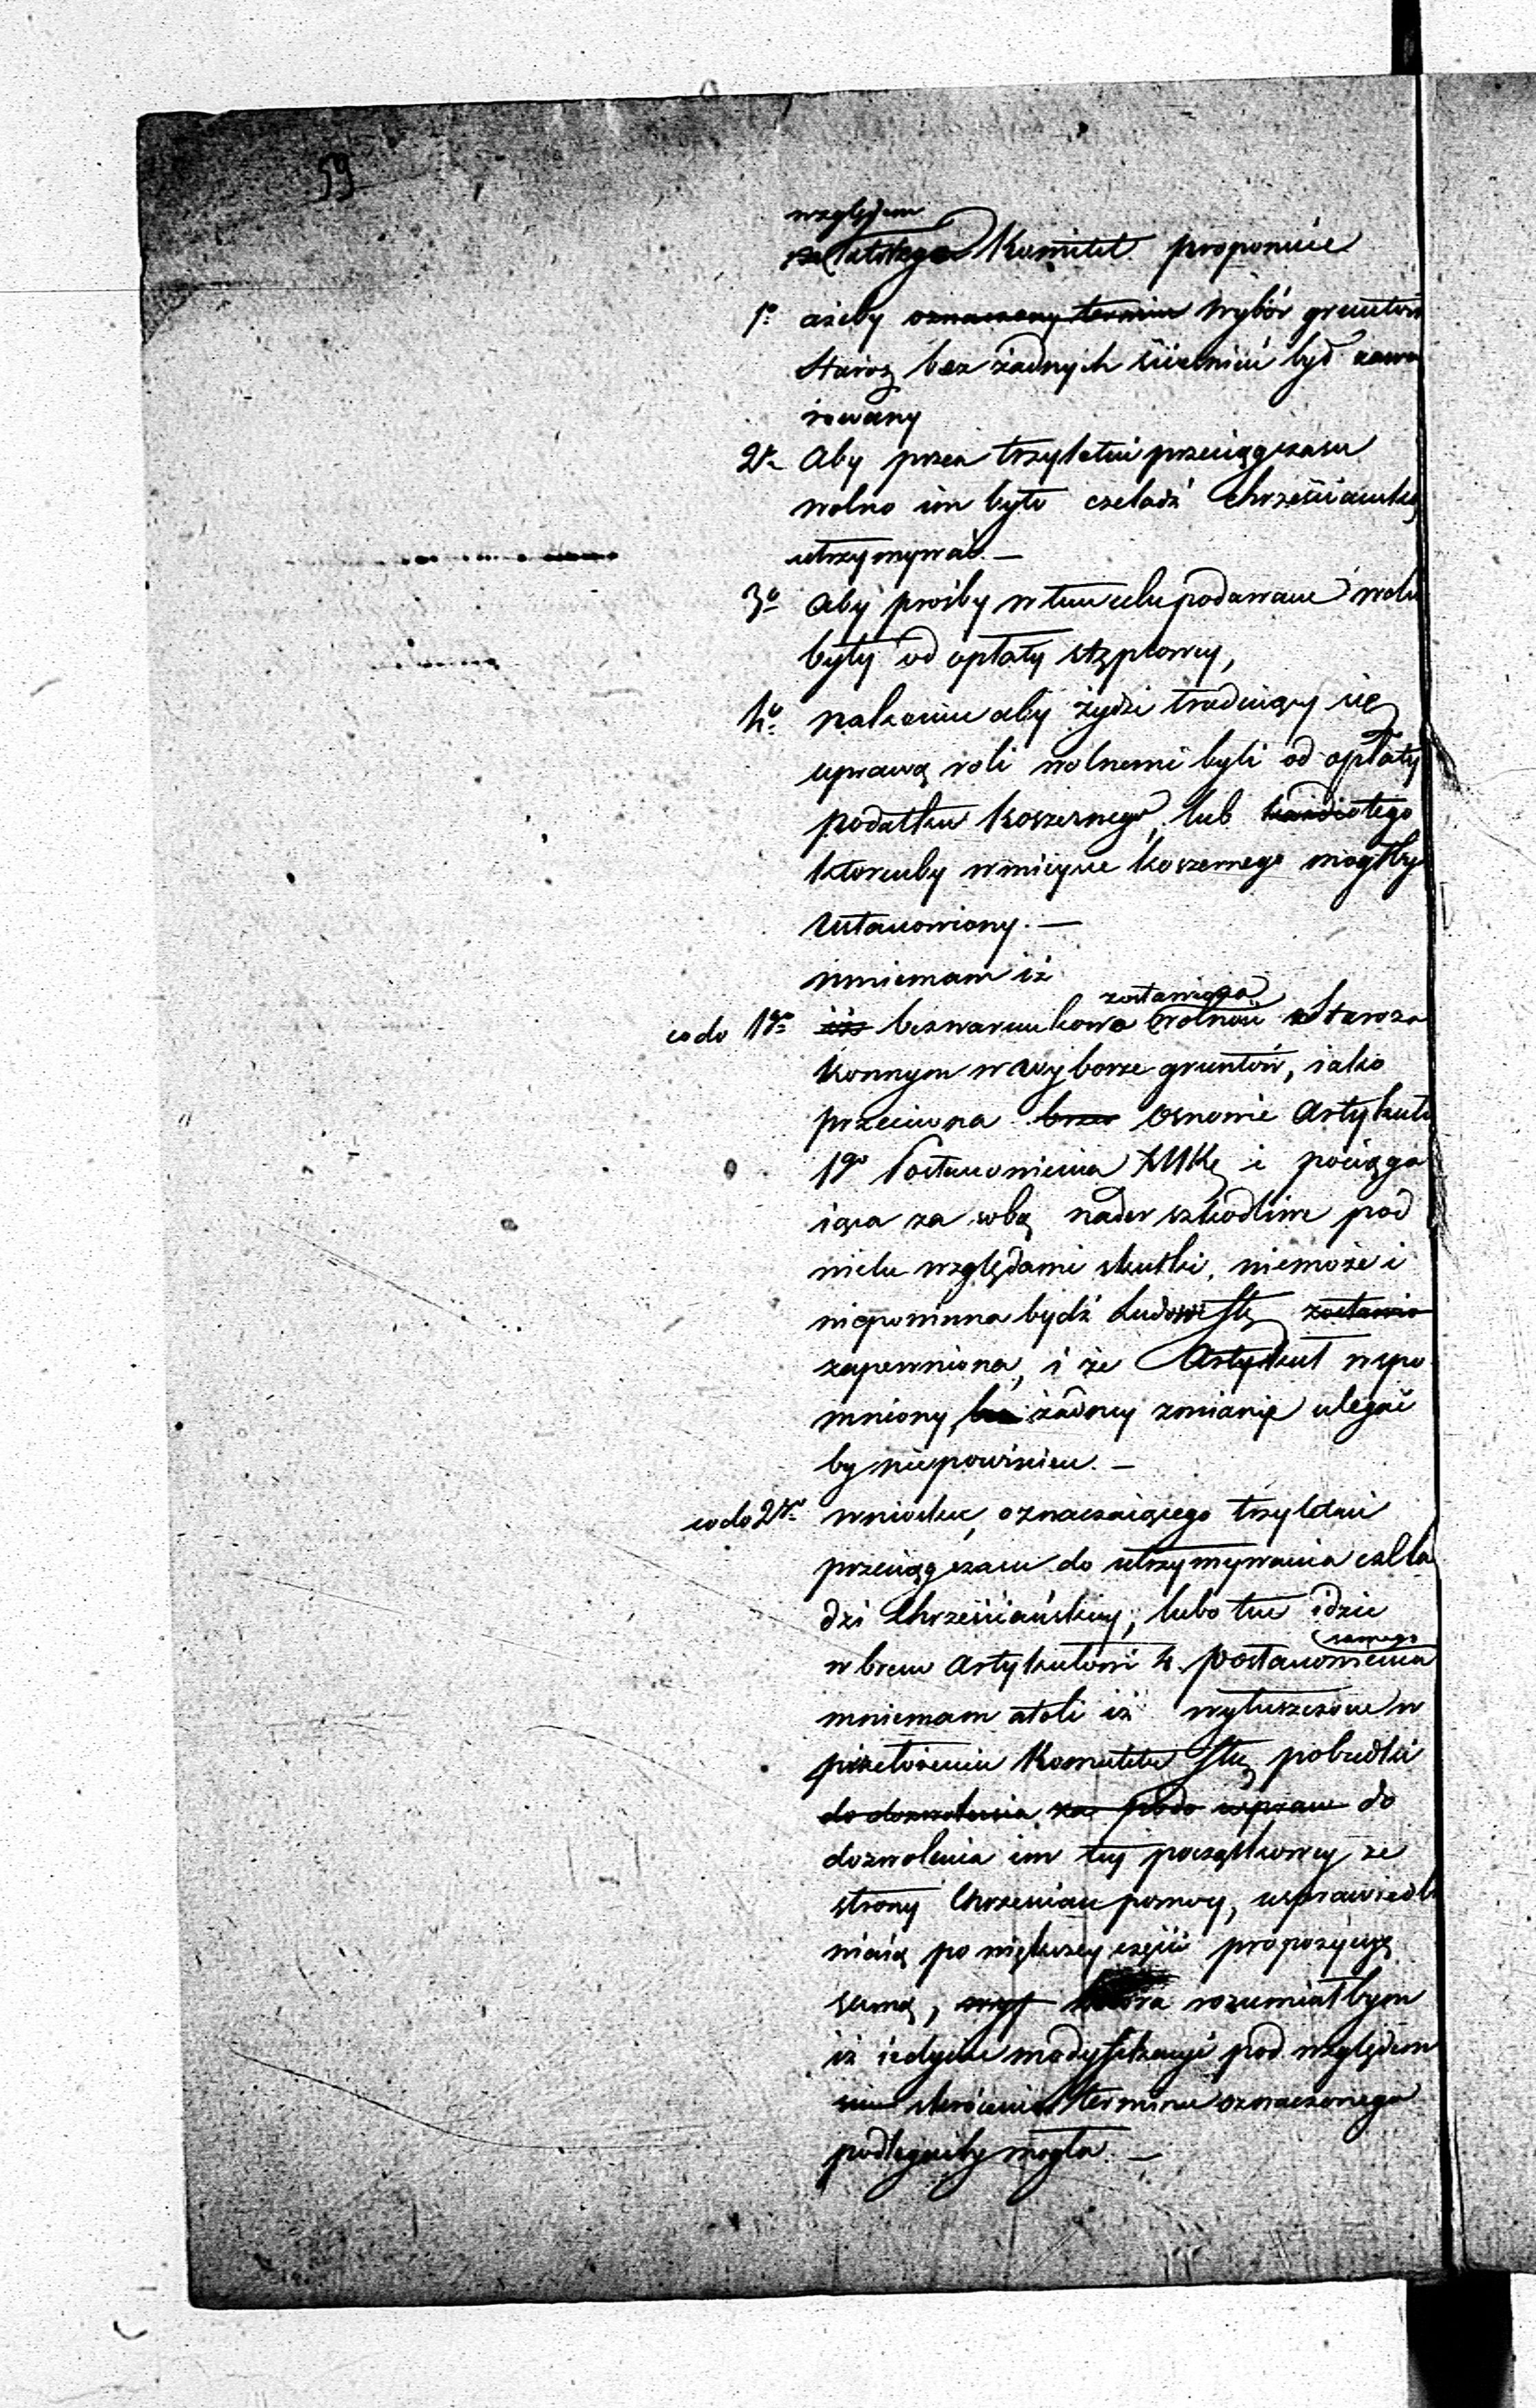 59
względem
Komitet proponuie
1o ażeby oznaczony termin wybór gruntów
Staroz bez żadnych ścieśnień był zawa
rowany
2o Aby przez trzyletni przeciąg czasu
wolno im było czeladź chrześciańską
utrzymywać. —
3o Aby prośby w tem celu podawane wolne
były od opłaty stęplowey,
4o nakoniec aby żydzi trudniący się
uprawą roli wolnemi byli od opłaty
podatku koszernego, lub tego
któryby w mieysce koszernego mógłby
ustanowiony. —
mniemam iż
co do 1go iż bezwarunkowa zostawiona wolność Staroza
konnym w wyborze gruntów, iako
przeciwna osnowie Artykułu
1go Postanowienia i pociąga
iąca za sobą nader szkodliwe pod
wielu względami skutki, niemoże i
niepowinna bydź zostawio
zapewniona, i że Artykuł wspo
mniony, żadney zmianie ulegać
by niepowinien. —
co do 2go wniosku, oznaczaiącego trzyletni
przeciąg czasu do utrzymywania czela
dzi Chrześciańskiey; lubo tue idzie
wbrew Artykułowi 4. postanowienia samego
mniemam atoli iż wyłuszczone w
przełożeniu Komitetu pobudki
do dozwolenia do
dozwolenia im tey początkowey ze
strony Chrześcian pomocy, usprawiedli
wiaią po większey części propozycyę
samą, która rozumiałbym
iż iedynie modyfikacyi pod względem
skrócenia terminu oznaczonego
podlegaćby mogła. —